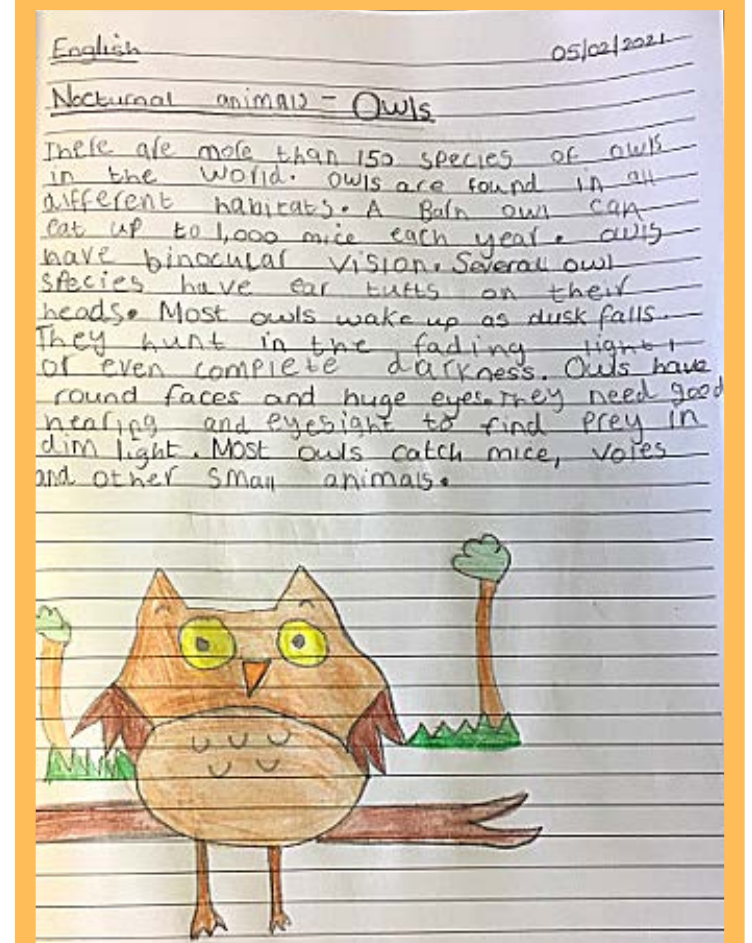 English 05/02/2021
Nocturnal animals - Owls
There are more than 150 species of owls
in the world. owls are found in all
different habitats. A Barn owl can
eat up to 1,000 mice each year. owls
have binocular vision. Several owl
species have ear tufts on their
heads. Most owls wake up as dusk falls.
They hunt in the fading light,
or even complete darkness. Owls have
round faces and huge eyes. They need good
hearing and eyesight to find prey in
dim light. Most owls catch mice, voles
and other small animals.